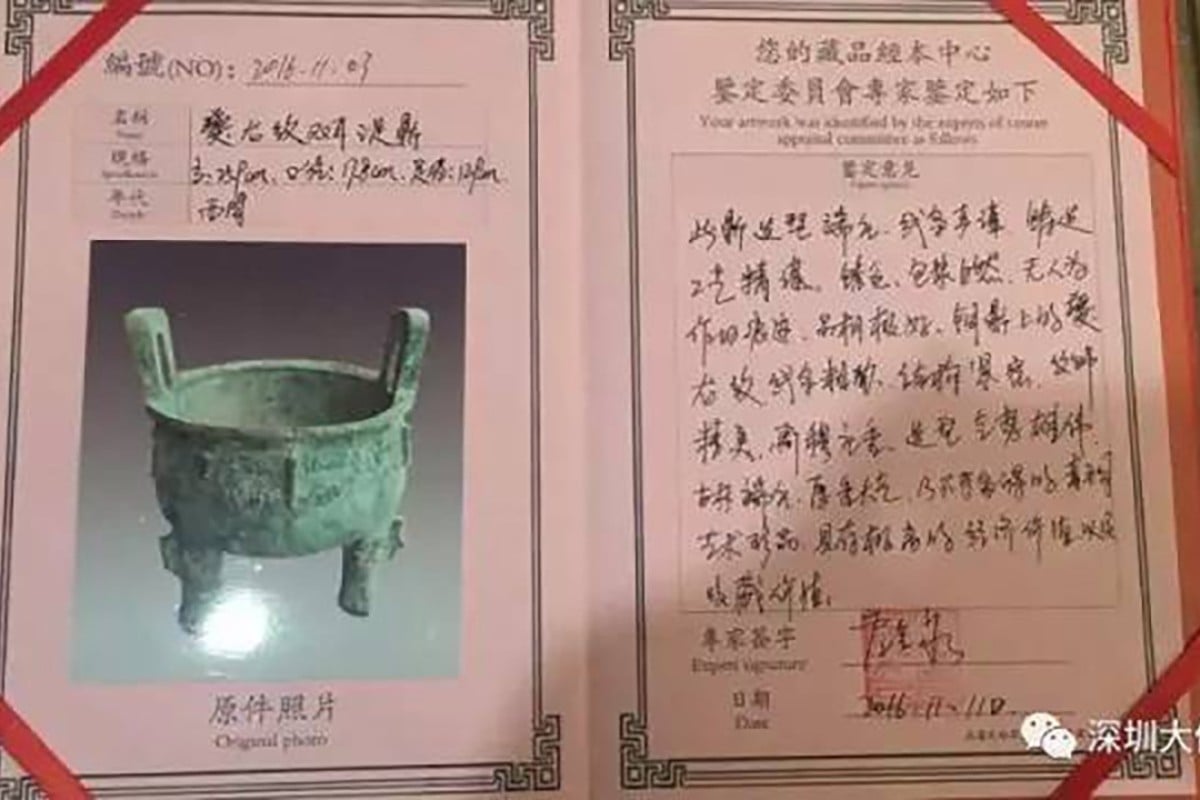 編號(NO): 2016.11.03
名稱
Name
夔龙纹双耳汉鼎
規格
高:25.9cm、口径:17.8cm、足高:12.9cm
年代
西周
原件照片
Original photo
您的藏品經本中心
鉴定委員會專家鉴定如下
Your artwork was identified by the experts of
appraisal committee as follows
鉴定意见
此鼎造型端庄、线条丰满、铸造
工艺精湛。锈色、包浆自然、无人为
作旧痕迹、品相极好、铜鼎上的夔
龙纹线条粗犷、结构紧密、纹饰
精美、造型气势雄伟、
古朴端庄、厚重大气、乃不可多得的青铜
艺术珍品、具有极高的经济价值以及
收藏价值。
專家簽字
Expert signature
日期
Date
2016.11.11日
深圳大